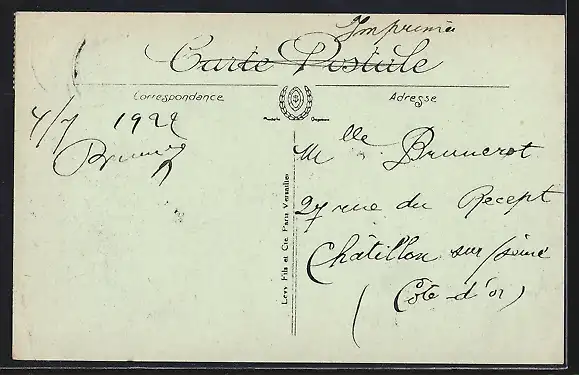 Imprimés
Carte Postale
Correspondance
Adresse
4/7 1922
Mlle Brunerot
27 rue du Recept
Châtillon sur/seine
(Côte-d'or)
Levy Fils et Cie Paris Versailles